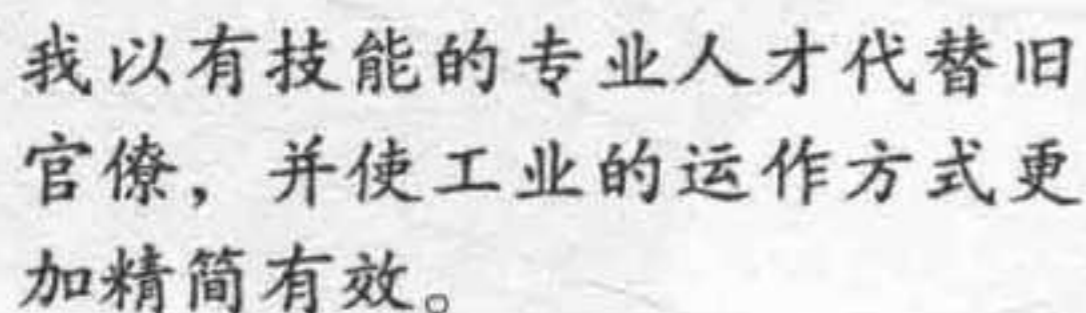 我以有技能的专业人才代替旧
官僚，并使工业的运作方式更
加精简有效。